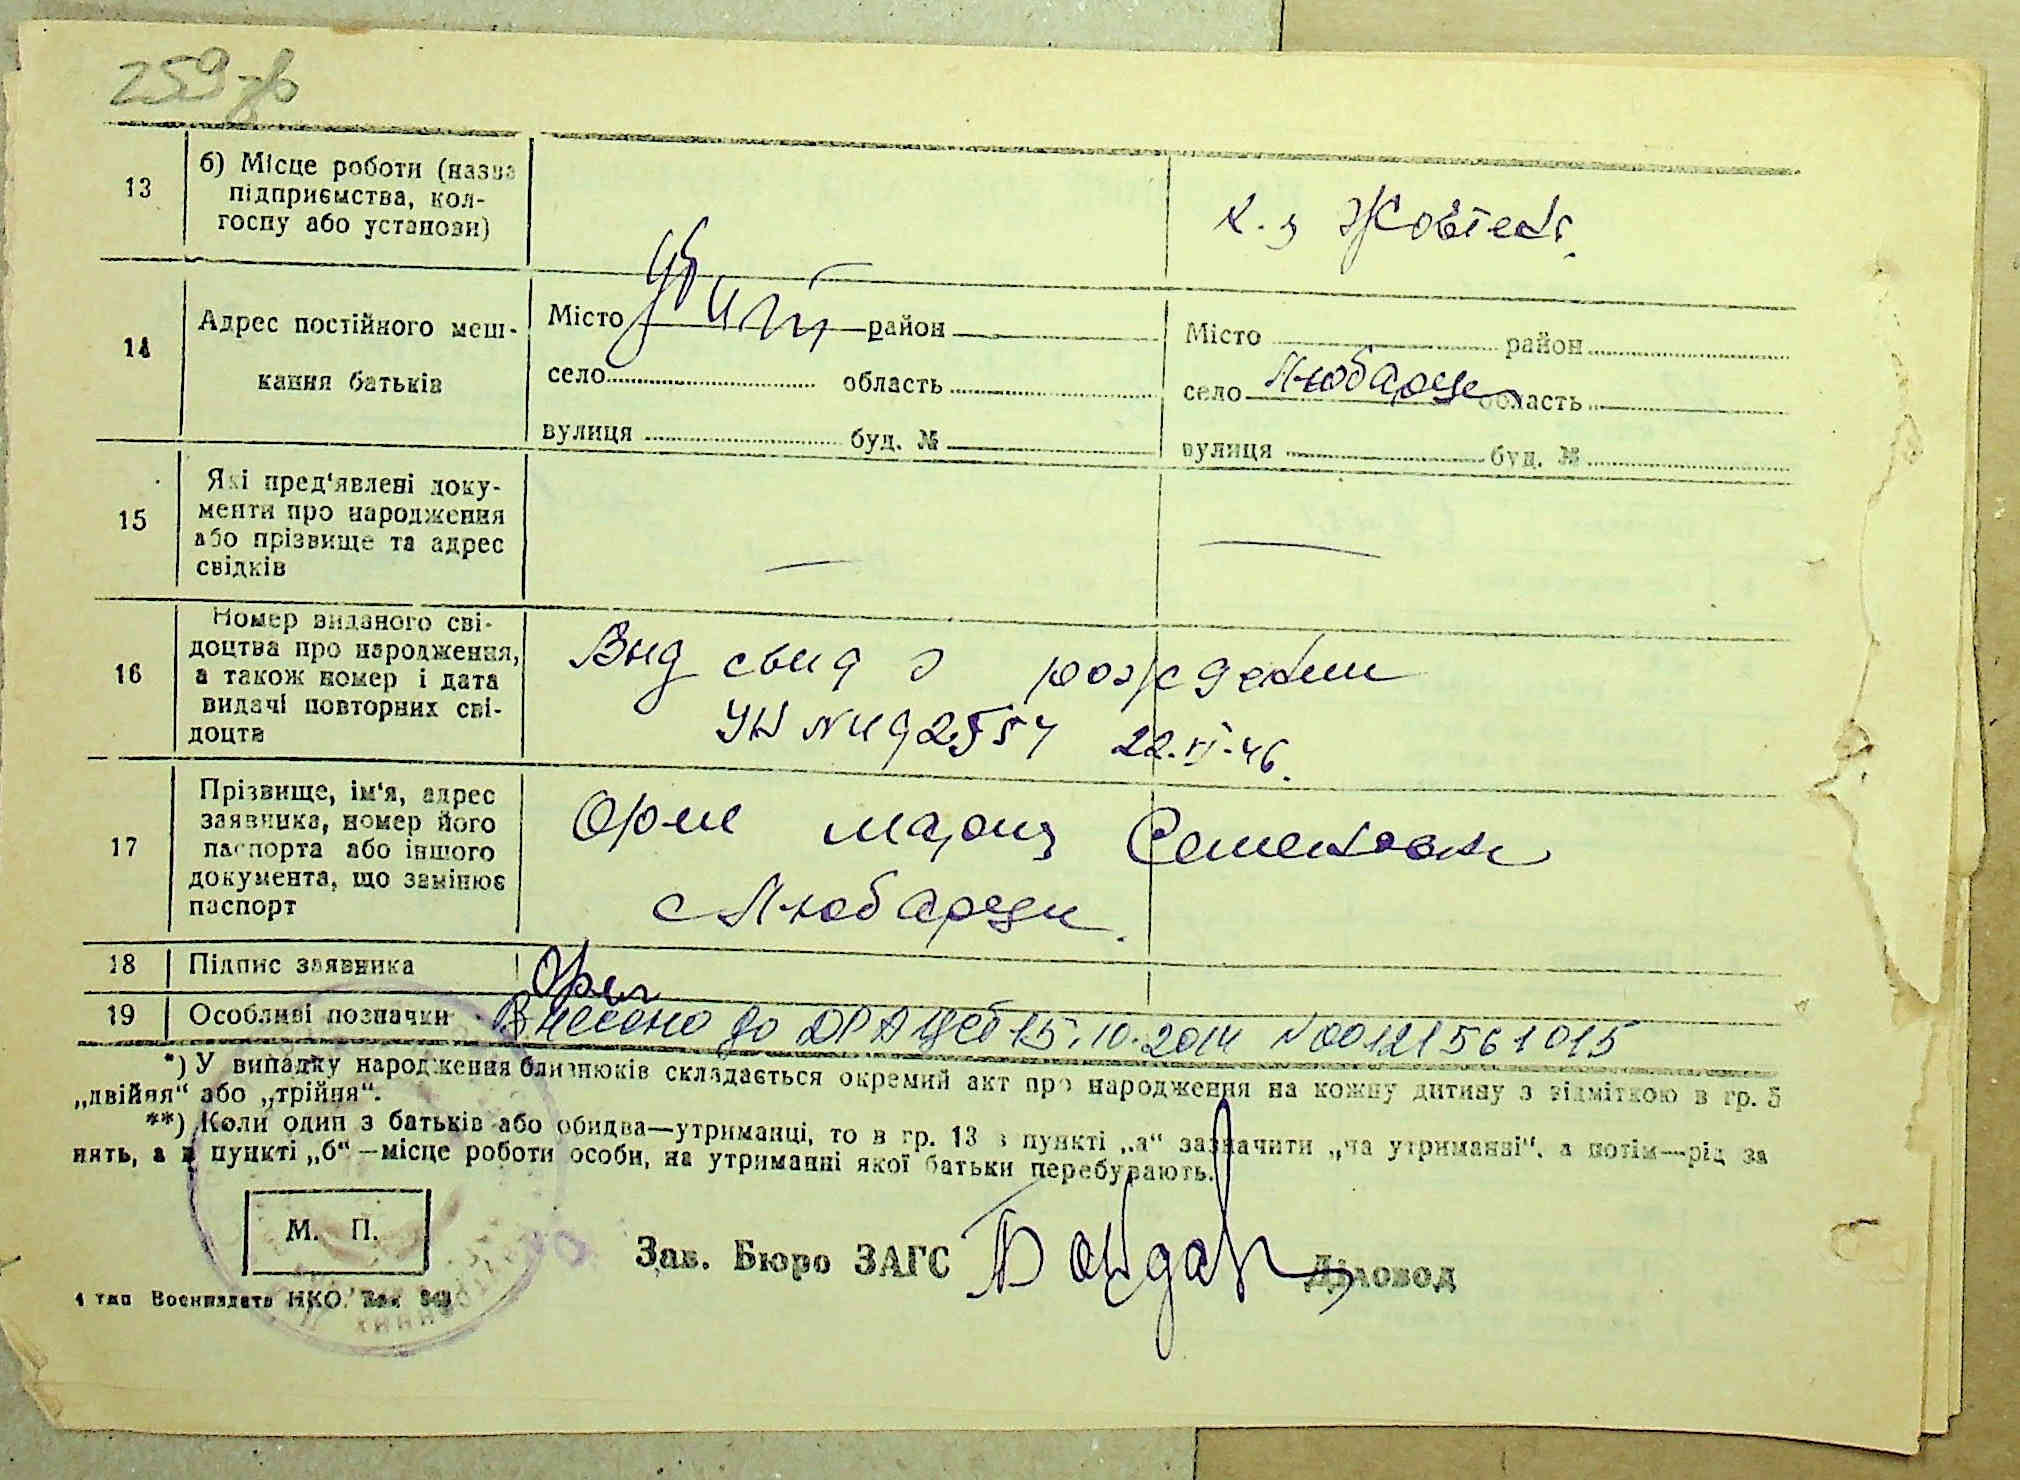 259 зв
13 б) Місце роботи (назва підприємства, колгоспу або установи)
к-з Жовтень
14 Адрес постійного мешкання батьків
Місто район
село область
вулиця буд. №
Місто район
село Любарці область
вулиця буд. №
15 Які пред'явлені документи про народження або прізвище та адрес свідків
— —
16 Номер виданого свідоцтва про народження, а також номер і дата видачі повторних свідоцтв
Выд свид о рождении
22.VI-46.
17 Прізвище, ім'я, адрес заявника, номер його паспорта або іншого документа, що замінює паспорт
Мария Семеновна
с Любарци.
18 Підпис заявника
19 Особливі позначки Внесено до ДРАЦСб 15.10.2014 N00121561015
*) У випадку народження близнюків складається окремий акт про народження на кожну дитину з відміткою в гр. 5
„двійня“ або „трійня“.
**) Коли один з батьків або обидва—утриманці, то в гр. 13 в пункті „а“ зазначити „на утриманні“, а потім—рід за
нять, а в пункті „б“—місце роботи особи, на утриманні якої батьки перебувають.
М. П.
Зав. Бюро ЗАГС Діловод
4 тип Воениздата НКО. Зак